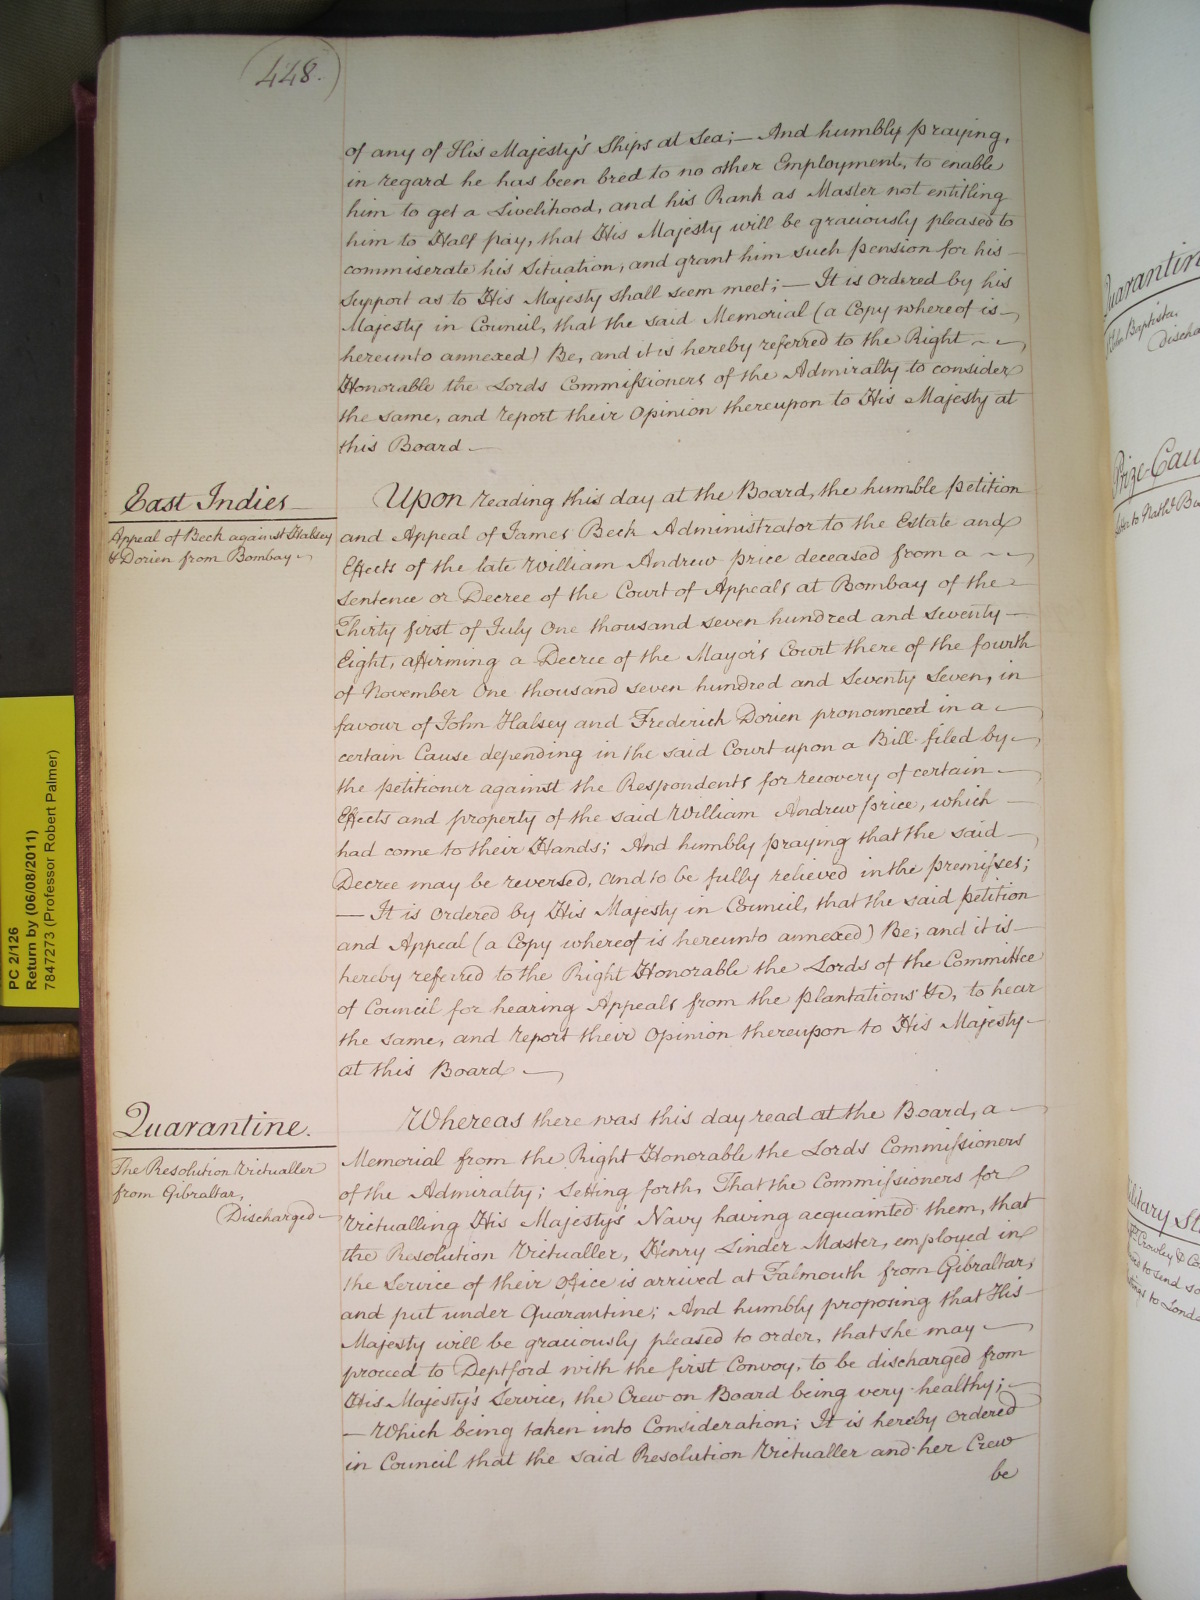 448.
of any of His Majesty's Ships at Sea; — And humbly praying,
in regard he has been bred to no other Employment, to enable
him to get a Livelihood, and his Rank as Master not entitling
him to Half pay, that His Majesty will be graciously pleased to
commiserate his Situation, and grant him such pension for his
Support as to His Majesty shall seem meet; — It is ordered by his
Majesty in Council, that the said Memorial (a Copy whereof is
hereunto annexed) Be, and it is hereby referred to the Right
Honorable the Lords Commissioners of the Admiralty to consider
the same, and report their Opinion thereupon to His Majesty at
this Board —
East Indies
Appeal of Beck against Halsey
& Dorien from Bombay
Upon reading this day at the Board, the humble petition
and Appeal of James Beck Administrator to the Estate and
Effects of the late William Andrew price deceased from a
Sentence or Decree of the Court of Appeals at Bombay of the
Thirty first of July One thousand seven hundred and seventy
Eight, affirming a Decree of the Mayor's Court there of the fourth
of November One thousand seven hundred and Seventy Seven, in
favour of John Halsey and Frederich Dorien pronounced in a
certain Cause depending in the said Court upon a Bill filed by
the petitioner against the Respondents for recovery of certain
Effects and property of the said William Andrew price, which
had come to their Hands; And humbly praying that the said
Decree may be reversed, and to be fully relieved in the premisses;
— It is Ordered by His Majesty in Council, that the said petition
and Appeal (a Copy whereof is hereunto annexed) Be; and it is
hereby referred to the Right Honorable the Lords of the Committee
of Council for hearing Appeals from the plantations &c, to hear
the same, and report their Opinion thereupon to His Majesty
at this Board
Quarantine.
The Resolution Victualler
from Gibraltar,
Discharged
Whereas there was this day read at the Board, a
Memorial from the Right Honorable the Lords Commissioners
of the Admiralty; Setting forth, That the Commissioners for
Victualling His Majesty's Navy having acquainted them, that
the Resolution Victualler, Henry Linder Master, employed in
the Service of their Office is arrived at Falmouth from Gibraltar,
and put under Quarantine; And humbly proposing that His
Majesty will be graciously pleased to order, that she may
proceed to Deptford with the first Convoy, to be discharged from
His Majesty's Service, the Crew on Board being very healthy;
— Which being taken into Consideration; It is hereby Ordered
in Council that the said Resolution Victualler and her Crew
be
PC 2/126
Return by (06/08/2011)
7847273 (Professor Robert Palmer)